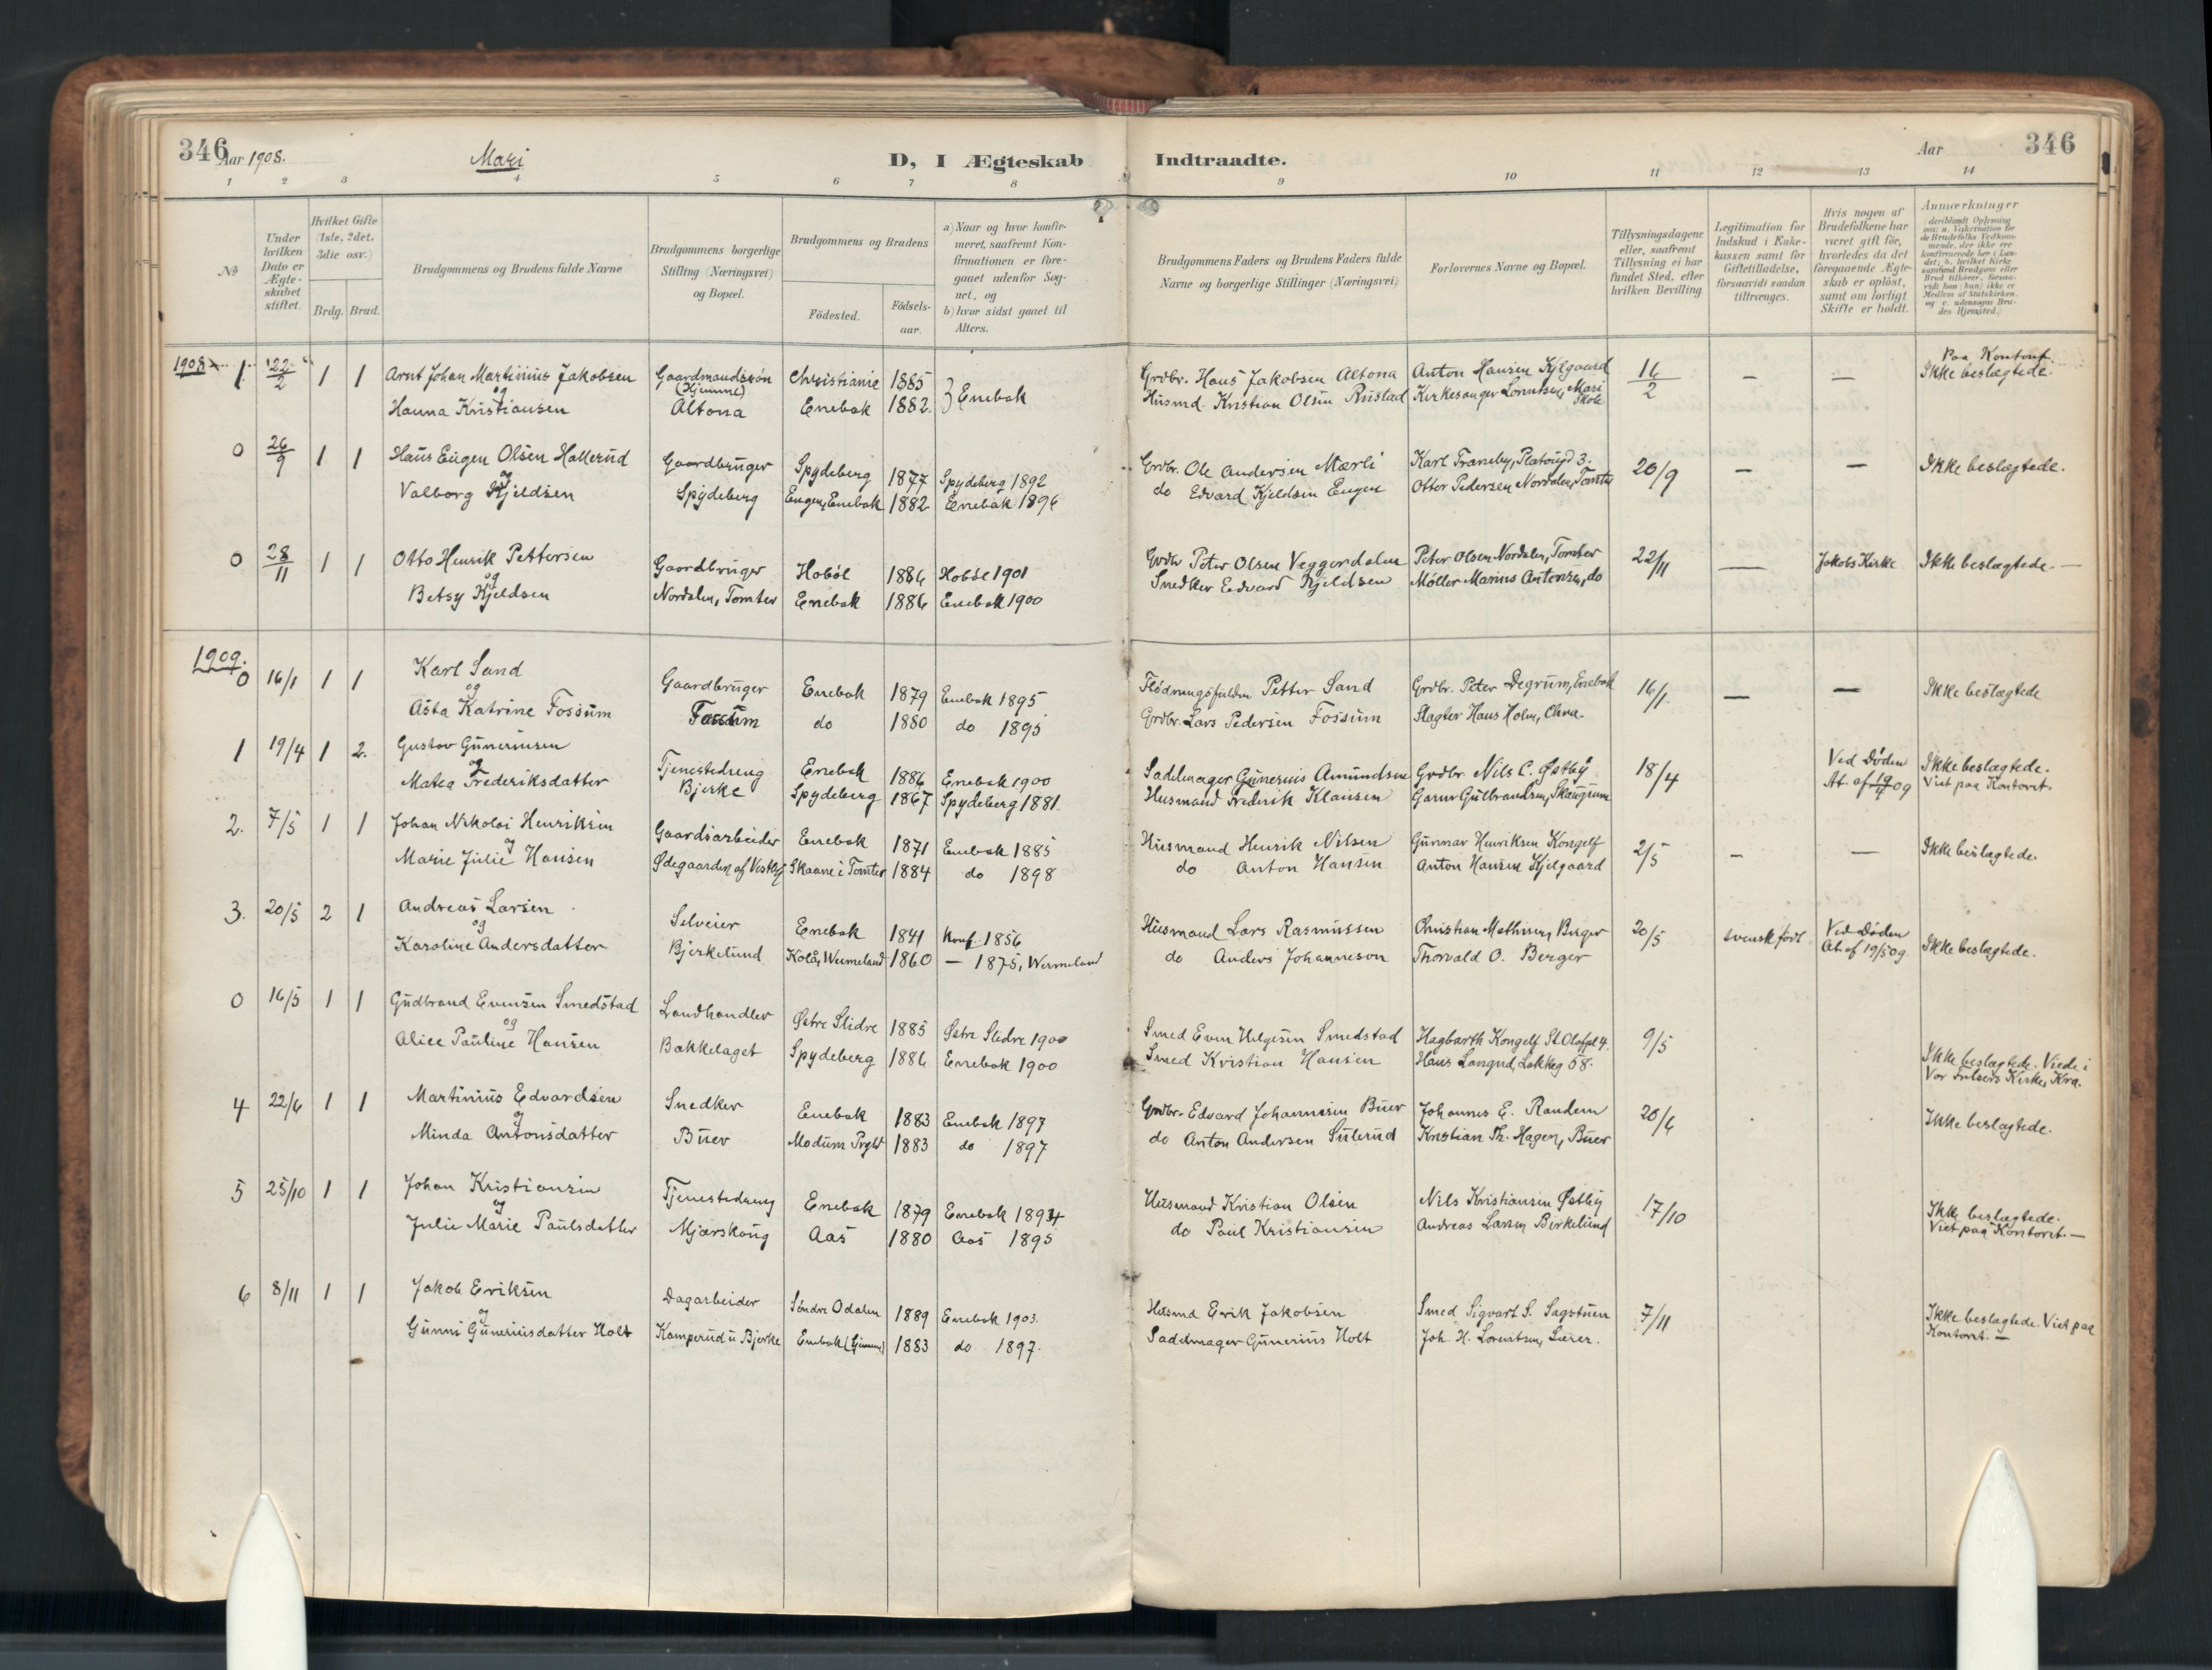 346
Aar 1908.
Mari
D, I Ægteskab
Indtraadte.
Aar
346
1 2 3 4 5 6 7 8 9 10 11 12 13 14
No
Under hvilken Dato er Ægteskabet stiftet.
Hvilket Gifte (1ste, 2det, 3die osv.)
Brdg. Brud.
Brudgommens og Brudens fulde Navne
Brudgommens borgerlige Stilling (Næringsvei) og Bopæl.
Brudgommens og Brudens
Födested.
Födsels-aar.
a) Naar og hvor konfirmeret, saafremt Konfirmationen er foregaaet udenfor Sognet, og
b) hvor sidst gaaet til Alters.
Brudgommens Faders og Brudens Faders fulde Navne og borgerlige Stillinger (Næringsvei)
Forlovernes Navne og Bopæl.
Tillysningsdagene eller, saafremt Tillysning ei har fundet Sted, efter hvilken Bevilling.
Legitimation for Indskud i Enkekassen samt for Giftetilladelse, forsaavidt saadan tiltrænges.
Hvis nogen af Brudefolkene har været gift för, hvorledes da det foregaaende Ægteskab er oplöst, samt om lovligt Skifte er holdt.
Anmærkninger
1908 1 22/2 1 1 Arnt Johan Martinius Jakobsen Gaardmandssøn Christiania 1885 Enebak Grdbr. Hans Jakobsen Altona Anton Hansen Kjelgaard 16/2 — — Paa Kontoret.
og (Hjemme) Ikke beslægtede.
Hanna Kristiansen Altona Enebak 1882 Husmd. Kristian Olsen Rustad Kirkesanger Lorentsen, Mari Skole
0 26/9 1 1 Hans Eugen Olsen Hallerud Gaardbruger Spydeberg 1877 Spydeberg 1892 Grdbr. Ole Andersen Mærli Karl Traneby, Platougd 3. 20/9 — — Ikke beslægtede.
og
Valborg Kjeldsen Spydeberg Eugen, Enebak 1882 Enebak 1896 do Edvard Kjeldsen Eugen Otter Pedersen Nordalen, Tomter
0 28/11 1 1 Otto Henrik Pettersen Gaardbruger Hobøl 1886 Hobøl 1901 Grdbr Peter Olsen Veggerdalen Peter Olsen Nordalen, Tomter 22/11 — Jakobs Kirke Ikke beslægtede. —
og
Betsy Kjeldsen Nordalen, Tomter Enebak 1886 Enebak 1900 Snedker Edvard Kjeldsen Møller Marius Antonsen, do
1909.
0 16/1 1 1 Karl Sand Gaardbruger Enebak 1879 Enebak 1895 Petter Sand Grdbr. Peter Degrum, Enebak 16/1 — — Ikke beslægtede
og
Asta Katrine Fossum Fossum do 1880 do 1895 Grdbr. Lars Pedersen Fossum Slagter Hans Holm, Chra.
1 19/4 1 2. Gustav Guneriusen Tjenestedreng Enebak 1886 Enebak 1900 Sadelmager Gunerius Amundsen Grdbr. Nils C. Østby 18/4 Ved Døden Ikke beslægtede.
og
Matea Frederiksdatter Bjerke Spydeberg 1867 Spydeberg 1881. Husmand Frederik Klausen Gulbrandsen, Skaugum At. af 19/4 09 Viet paa Kontoret.
2. 7/5 1 1 Johan Nikolai Henriksen Gaardsarbeider Enebak 1871 Enebak 1885 Husmand Henrik Nilsen Gunnar Henriksen Kongelf 2/5 — — Ikke beslægtede.
og
Marie Julie Hansen Ødegaarden af Vestby Skaane i Tomter 1884 do 1898 do Anton Hansen Anton Hansen Kjelgaard
3. 20/5 2 1 Andreas Larsen Selveier Enebak 1841 Konf. 1856 Husmand Lars Rasmussen Christian Mathisen, Berger 20/5 svensk født Ved Døden Ikke beslægtede.
og
Karoline Andersdatter Bjerkelund Kolå, Wermeland 1860 — 1875, Wermeland do Anders Johanneson Thorvald O. Berger At. af 19/5 09.
0 16/5 1 1 Gudbrand Evensen Smedstad Landhandler Østre Slidre 1885 Østre Slidre 1900 Smed Even Helgesen Smedstad Hagbarth Kongelf St. Olafspl 4. 9/5
og
Alice Pauline Hansen Bækkelaget Spydeberg 1886 Enebak 1900 Smed Kristian Hansen Hans Langrud, Løkkeg 58. Ikke beslægtede. Viede i Vor Frelsers Kirke, Kra.
4 22/6 1 1 Martinius Edvardsen Snedker Enebak 1883 Enebak 1897 Grdbr. Edvard Johannesen Buer Johannes E. Randem 20/6 Ikke beslægtede.
og
Minda Antonsdatter Buer Modum Prgld 1883 do 1897 do Anton Andersen Sulerud Kristian Th. Hagen, Buer
5 25/10 1 1 Johan Kristiansen Tjenestedreng Enebak 1879 Enebak 1894 Husmand Kristian Olsen Nils Kristiansen Østby 17/10 Ikke beslægtede.
og
Julie Marie Paulsdatter Mjærskoug Aas 1880 Aas 1895 do Paul Kristiansen Andreas Larsen Birkelund Viet paa Kontoret. —
6 8/11 1 1 Jakob Eriksen Dagarbeider Søndre Odalen 1889 Enebak 1903. Husmd Erik Jakobsen Smed Sigvart S. Sagstuen 7/11 Ikke beslægtede. Viet paa
og
Gunni Guneriusdatter Holt Kamperud u Bjerke Enebak 1883 do 1897. Saddmager Gunerius Holt Joh. H. Lorentsen, Lærer. Kontoret. —